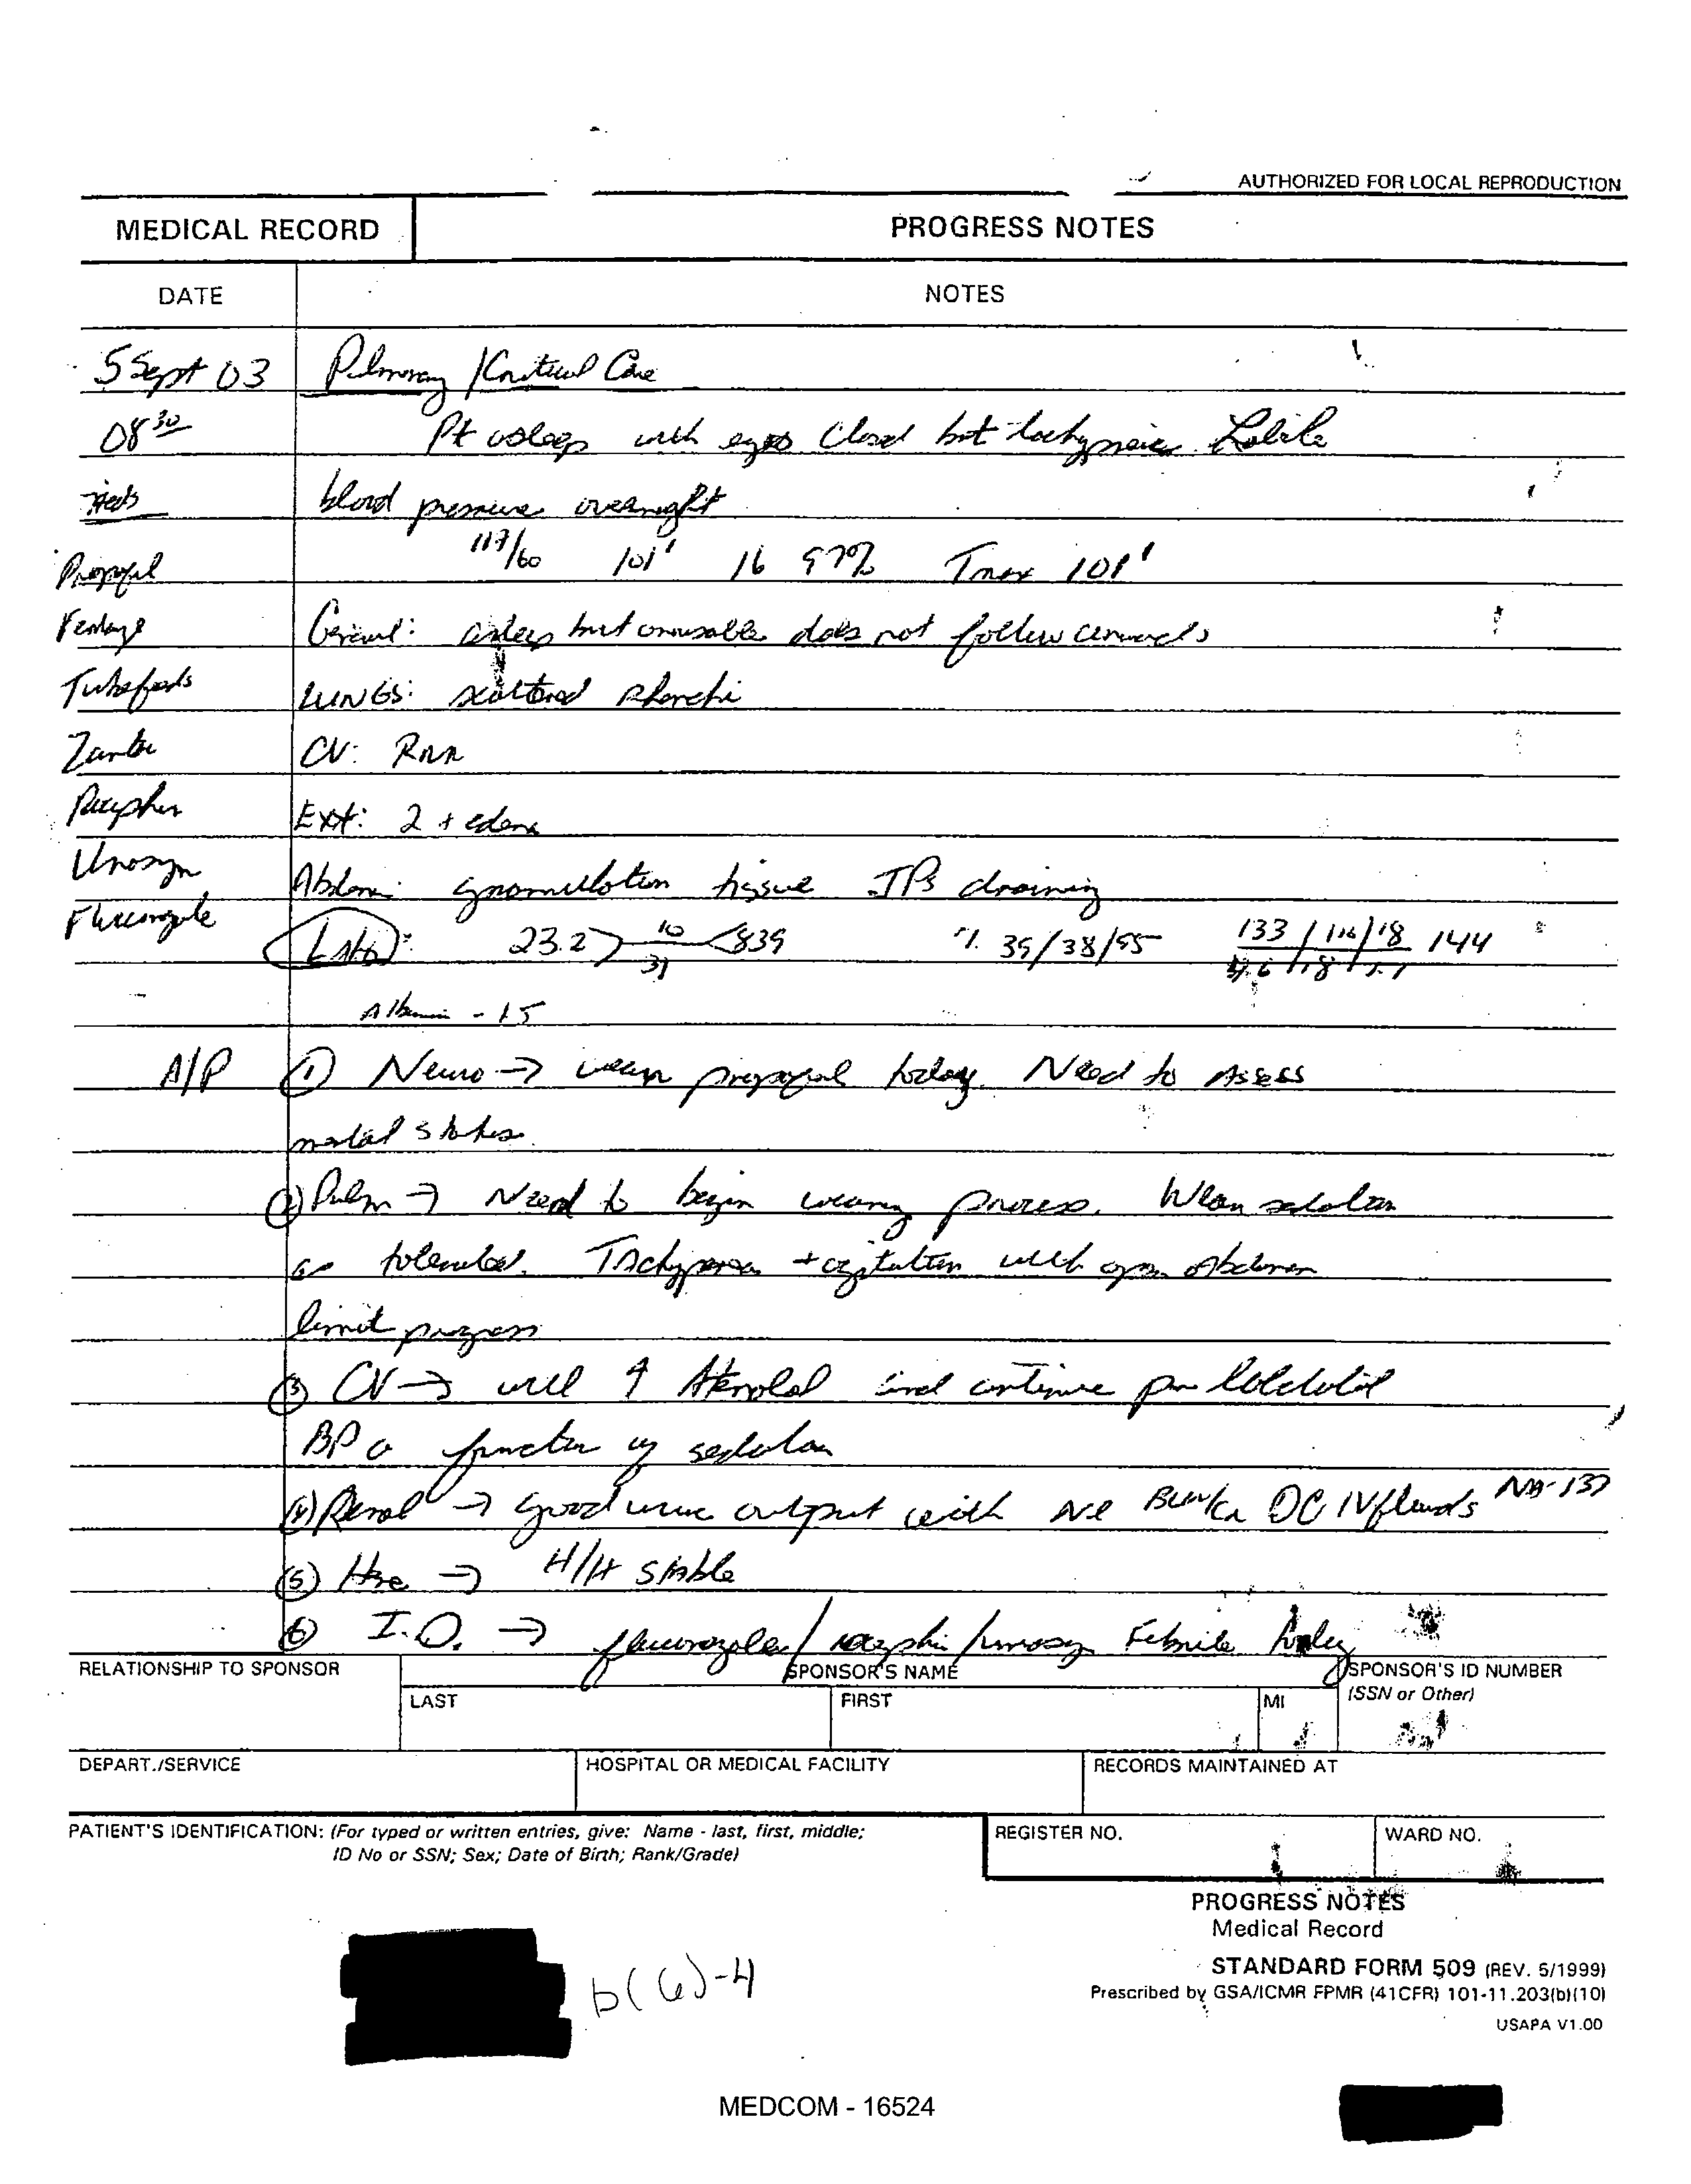 AUTHORIZED FOR LOCAL REPRODUCTION
MEDICAL RECORD PROGRESS NOTES
DATE NOTES
5 Sept 03 Pulmonary / Critical Care
08 30 Pt asleep with eyes closed but tachypneic. Labile
Meds blood pressure overnight
Propofol 117/60 101' 16 97% Tmax 101'
Fentanyl General: asleep but arousable does not follow commands
Tubefeeds LUNGS: scattered Rhonchi
Zantac CV: RRR
Rocephin Ext: 2 + edema
Unasyn Abdomen: granulation tissue JPs draining
Fluconazole Labs: 23.2 10 31 839 39/38/55 133 / 18 144
Albumin - 1.5
A/P ① Neuro → wean propofol today. Need to Assess
mental status.
② Pulm → Need to begin weaning process. Wean sedation
as tolerated. Tachypnea + agitation with open abdomen
limit progress
③ CV → will ↑ Atenolol and continue prn labetalol
BP a function of sedation
④ Renal → good urine output with nl Bun/Cr DC IV fluids NA-137
⑤ Heme → H/H stable
⑥ I.D. → fluconazole / rocephin / unasyn Febrile today
RELATIONSHIP TO SPONSOR SPONSOR'S NAME SPONSOR'S ID NUMBER
LAST FIRST MI (SSN or Other)
DEPART./SERVICE HOSPITAL OR MEDICAL FACILITY RECORDS MAINTAINED AT
PATIENT'S IDENTIFICATION: (For typed or written entries, give: Name - last, first, middle; REGISTER NO. WARD NO.
ID No or SSN; Sex; Date of Birth; Rank/Grade)
PROGRESS NOTES
Medical Record
STANDARD FORM 509 (REV. 5/1999)
b(6)-4
Prescribed by GSA/ICMR FPMR (41CFR) 101-11.203(b)(10)
USAPA V1.00
MEDCOM - 16524